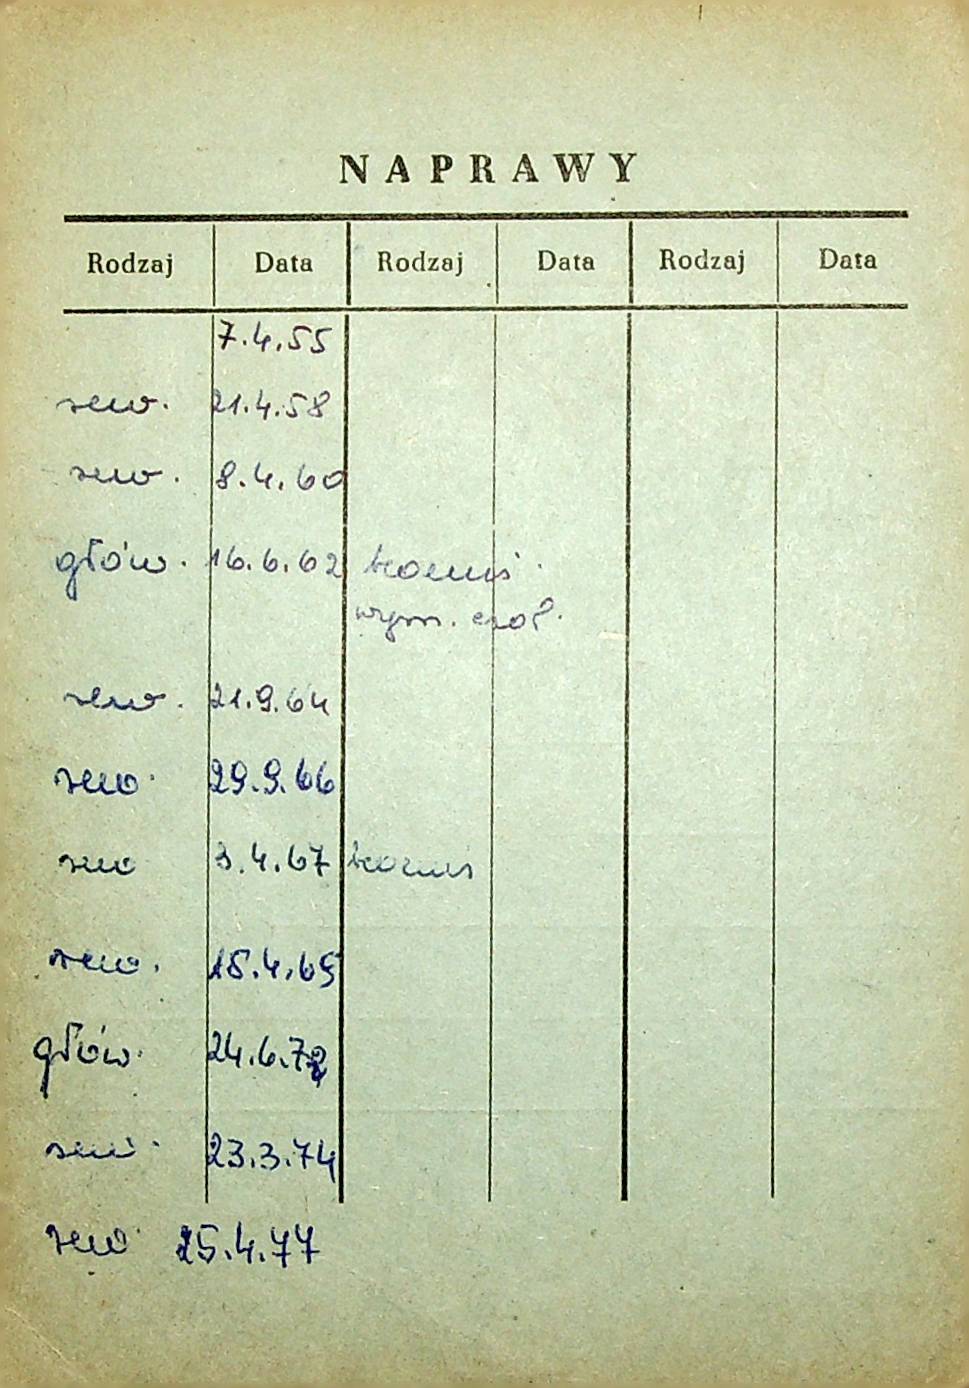 NAPRAWY
Rodzaj Data Rodzaj Data Rodzaj Data
7.4.55
rew. 21.4.58
rew. 8.4.60
głów. 16.6.62
wym. czoł.
rew. 21.9.64
rew. 29.9.66
rew 3.4.67
rew. 15.4.69
głów. 24.6.72
rew. 23.3.74
rew. 25.4.77